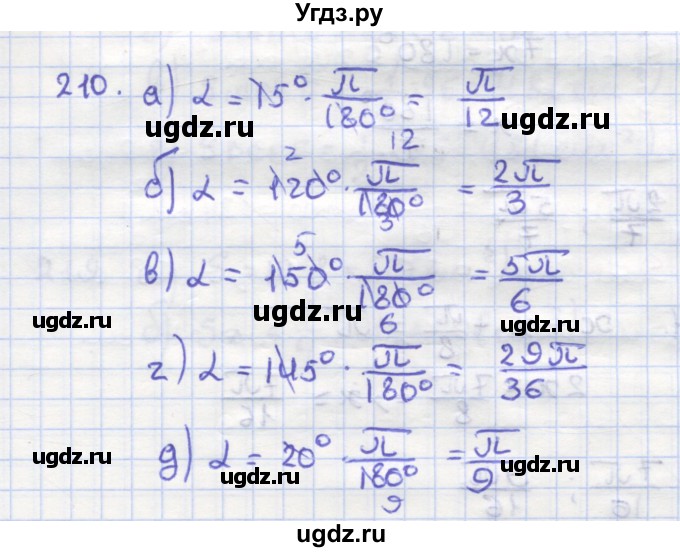 Угдз.ру
210. а) α = 15° · π/180° = π/12
12
ugdz.ru ugdz.ru
2
б) α = 120° · π/180° = 2π/3
3
ugdz.ru ugdz.ru
5
в) α = 150° · π/180° = 5π/6
6
ugdz.ru ugdz.ru ugdz.ru
г) α = 145° · π/180° = 29π/36
ugdz.ru
д) α = 20° · π/180° = π/9
9
ugdz.ru ugdz.ru ugdz.ru
ugdz.ru